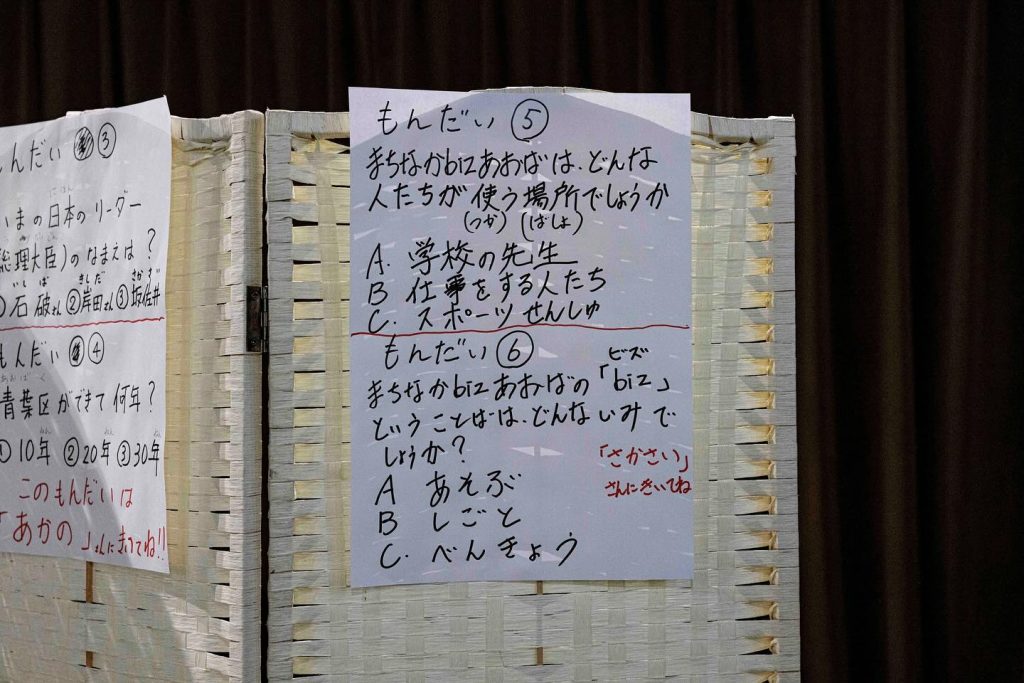 もんだい ③
いまの日本のリーダー
にほん
総理大臣)のなまえは?
①石破さん ②岸田さん ③坂佐井
いしば きしだ さかさい
もんだい ④
青葉区ができて何年?
あおばく
①10年 ②20年 ③30年
ねん ねん ねん
このもんだいは
「あかの」さんにきいてね!!
もんだい ⑤
まちなかbizあおばは、どんな
人たちが使う場所でしょうか
(つか) (ばしょ)
A. 学校の先生
B 仕事をする人たち
C. スポーツせんしゅ
もんだい ⑥
まちなかbizあおばの「biz」
ビズ
ということばは、どんないみで
しょうか?
「さかさい」
さんにきいてね
A あそぶ
B しごと
C. べんきょう